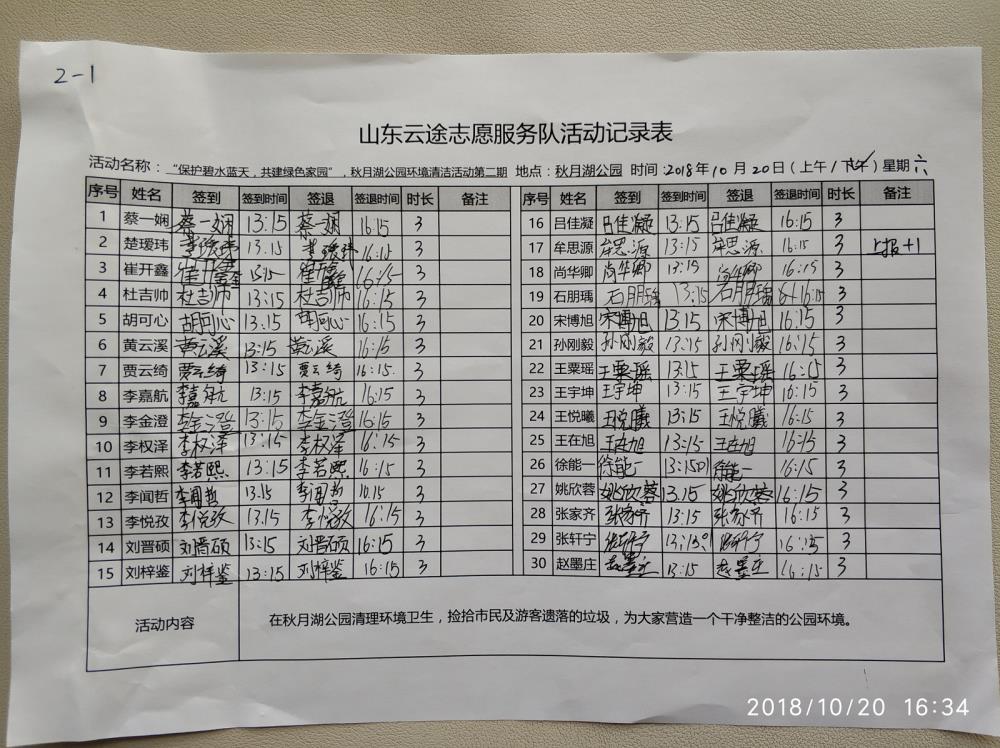 2-1
山东云途志愿服务队活动记录表
活动名称：“保护碧水蓝天，共建绿色家园”，秋月湖公园环境清洁活动第二期 地点：秋月湖公园 时间:2018年10月20日（上午/下午）星期六
序号 姓名 签到 签到时间 签退 签退时间 时长 备注 序号 姓名 签到 签到时间 签退 签退时间 时长 备注
1 蔡一娴 蔡一娴 13:15 蔡一娴 16:15 3 16 吕佳凝 吕佳凝 13:15 吕佳凝 16:15 3
2 楚瑷玮 13:15 16:15 3 17 牟思源 牟思源 13:15 牟思源 16:15 3 上报+1
3 崔开鑫 崔开鑫 13:15 崔开鑫 16:15 3 18 尚华卿 尚华卿 13:15 尚华卿 16:15 3
4 杜吉帅 杜吉帅 13:15 杜吉帅 16:15 3 19 石朋瑀 石朋瑀 13:15 石朋瑀 16:15 3
5 胡可心 胡可心 13:15 胡可心 16:15 3 20 宋博旭 宋博旭 13:15 宋博旭 16:15 3
6 黄云溪 黄云溪 13:15 黄云溪 16:15 3 21 孙刚毅 孙刚毅 13:15 孙刚毅 16:15 3
7 贾云绮 贾云绮 13:15 贾云绮 16:15. 3 22 王粟瑶 王粟瑶 13:15 王粟瑶 16:15 3
8 李嘉航 李嘉航 13:15 李嘉航 16:15 3 23 王宇坤 王宇坤 13:15 王宇坤 16:15 3
9 李金澄 李金澄 13:15 李金澄 16:15 3 24 王悦曦 王悦曦 13:15 王悦曦 16:15 3
10 李权泽 李权泽 13:15 李权泽 16:15 3 25 王在旭 王在旭 13:15 王在旭 16:15 3
11 李若熙 李若熙 13:15 李若熙 16:15 3 26 徐能一 徐能一 13:15 徐能一 16:15 3
12 李闻哲 李闻哲 13.15 李闻哲 16.15 3 27 姚欣蓉 姚欣蓉 13.15 姚欣蓉 16:15 3
13 李悦孜 李悦孜 13.15 李悦孜 16:15 3 28 张家齐 张家齐 13:15 张家齐 16:15 3
14 刘晋硕 刘晋硕 13:15 刘晋硕 16:15 3 29 张轩宁 张轩宁 张轩宁 16:15 3
15 刘梓鉴 刘梓鉴 13:15 刘梓鉴 16:15 3 30 赵墨庄 赵墨庄 13:15 赵墨庄 16:15 3
活动内容 在秋月湖公园清理环境卫生，捡拾市民及游客遗落的垃圾，为大家营造一个干净整洁的公园环境。
2018/10/20 16:34